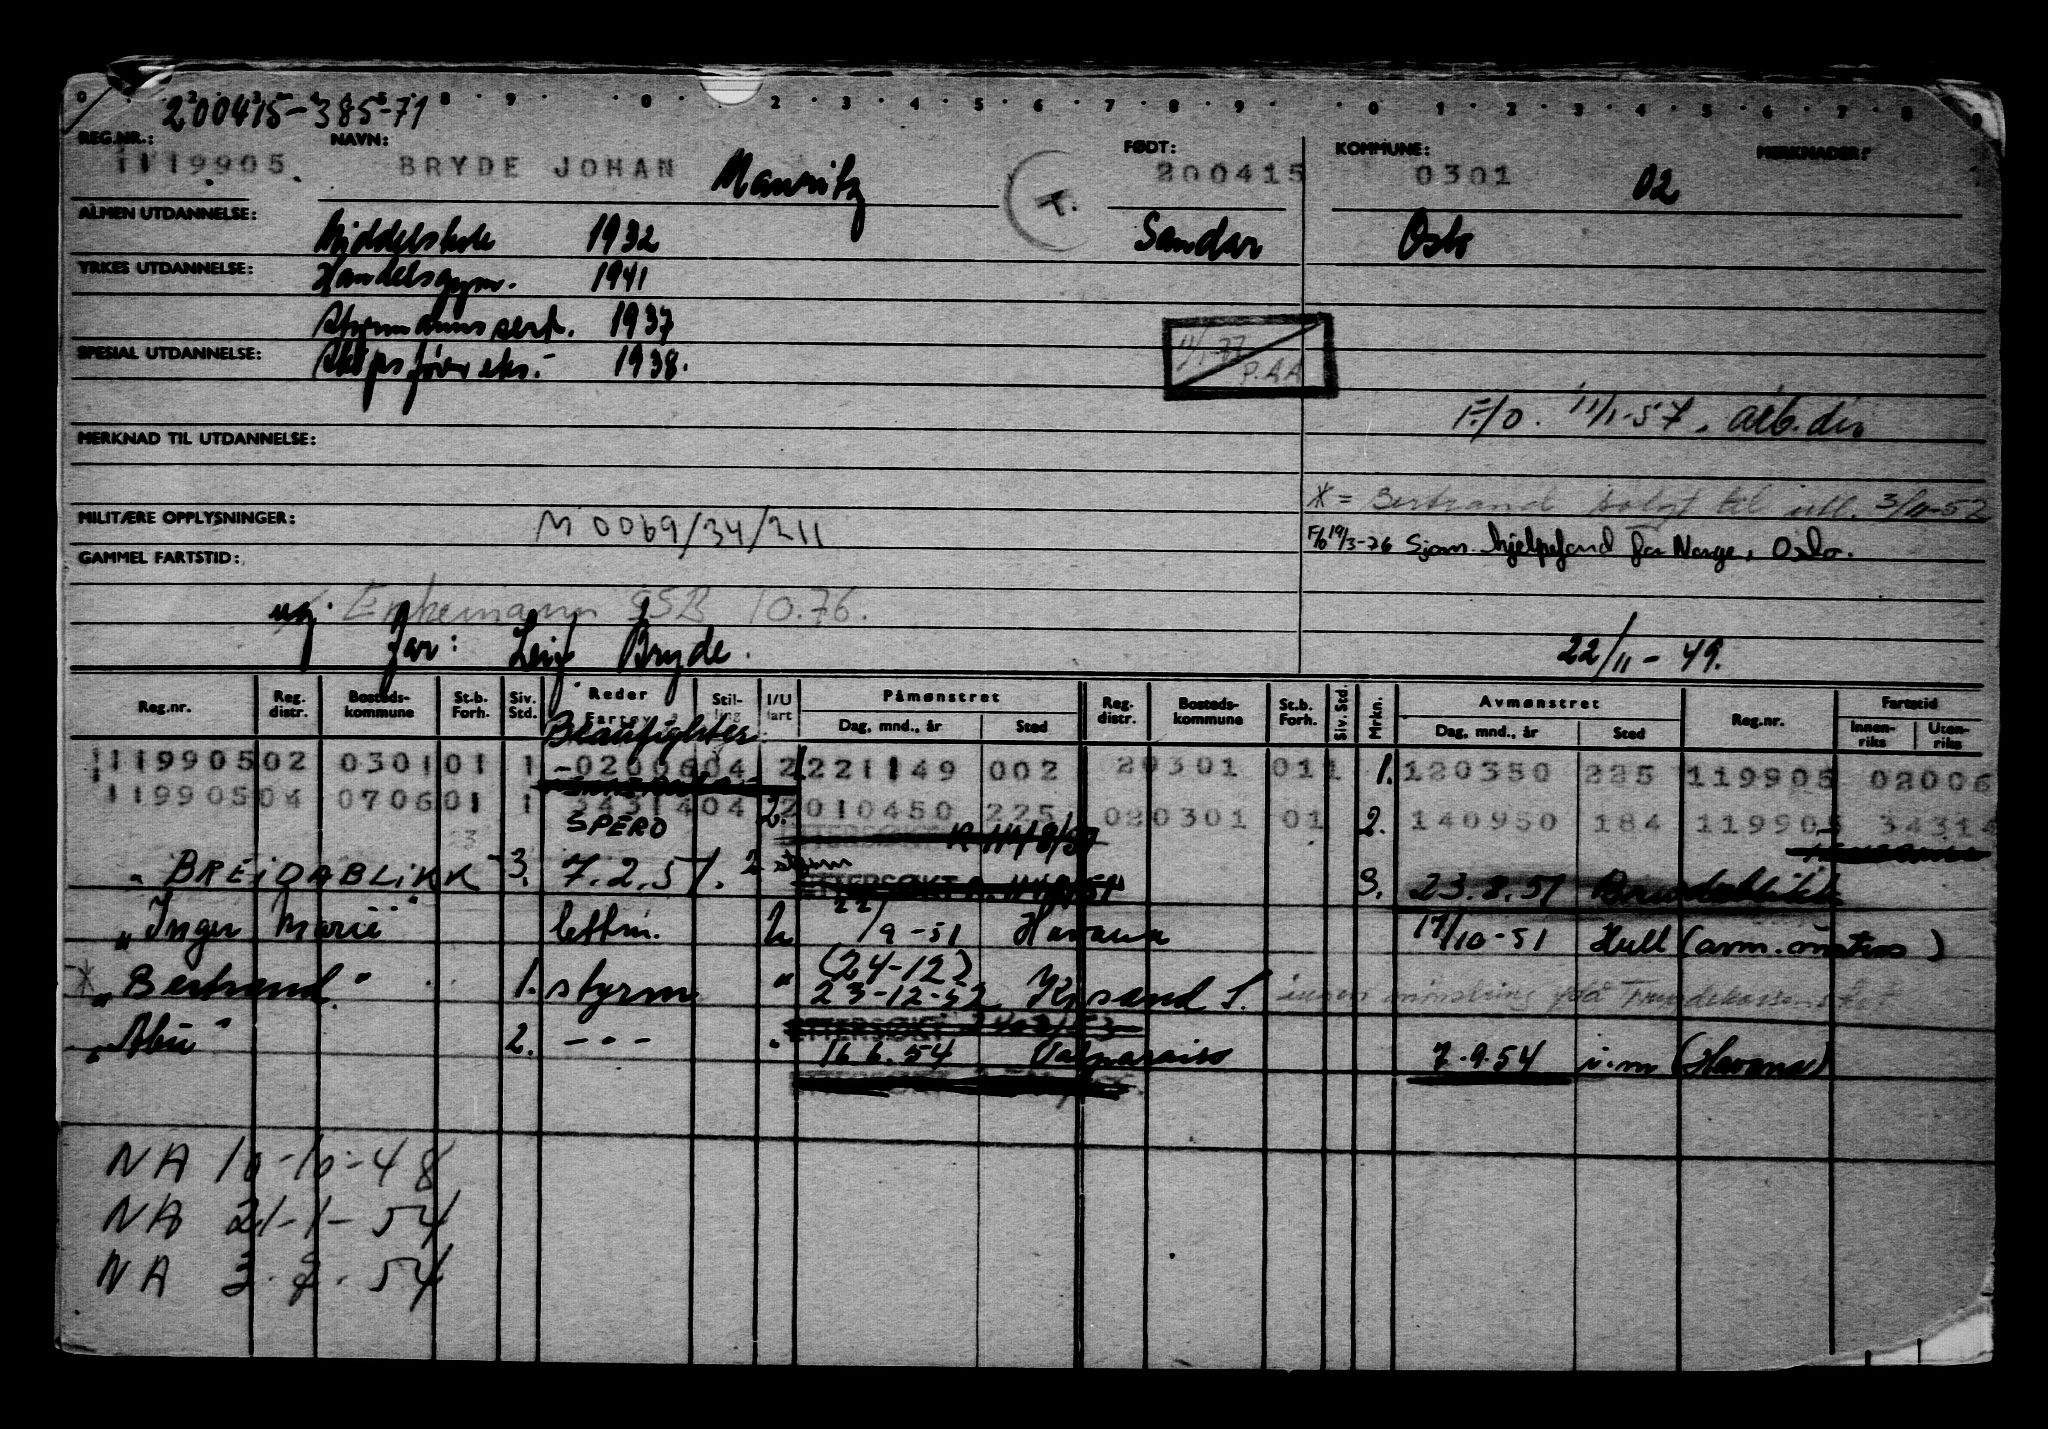 200415-385-71
REG.NR.: NAVN: FØDT: KOMMUNE: MERKNADER:
1119905 BRYDE JOHAN Mauritz T. 200415 0301 02
ALMEN UTDANNELSE: Middelskole 1932 Sandar Oslo
YRKES UTDANNELSE: Handelsgym. 1941
Styrmannssert. 1937
SPESIAL UTDANNELSE: Skipsfører eks.- 1938.
11/1-77 P.AA
F/O. 11/1-57. arb.dir
MERKNAD TIL UTDANNELSE:
* = Bertrand solgt til utl. 3/11-52
MILITÆRE OPPLYSNINGER: M 0069/34/211
F/O 19/3-76 Sjøm. hjelpefond for Norge, Oslo.
GAMMEL FARTSTID:
10.76.
far: Leif Bryde.
22/11-49.
Reg.nr. Reg. distr. Bosteds-kommune St.b. Forh. Siv. Std. Reder Stilling I/U fart Påmønstret Reg. distr. Bosteds-kommune St.b. Forh. Siv. Std. Mrkn. Avmønstret Reg.nr. Fartstid
Dag, mnd., år Sted Dag, mnd., år Sted Innen-riks Uten-riks
Beaufighter
11990502 0301 01 1 -0200604 2 221149 002 20301 011 1. 120350 225 119905 02006
11990504 0706 01 1 3431404 2 010450 225 020301 01 2. 140950 184 119905 34314
SPERO 2.
"BREIDABLIKK" 3. 7.2.51. 2 styrm 3. 23.8.51
"Inger Marie" lettm. 22/9-51 Havana 17/10-51 Hull
* "Bertrand." 1. styrm " (24-12) 23-12-52 Kr.sand S.
"Abu" 2. -"- " 16.6.54 Valparaiso 7.9.54 u.m (Havana)
NA 10-10-48
NA 21-1-54
NA 3.8.54